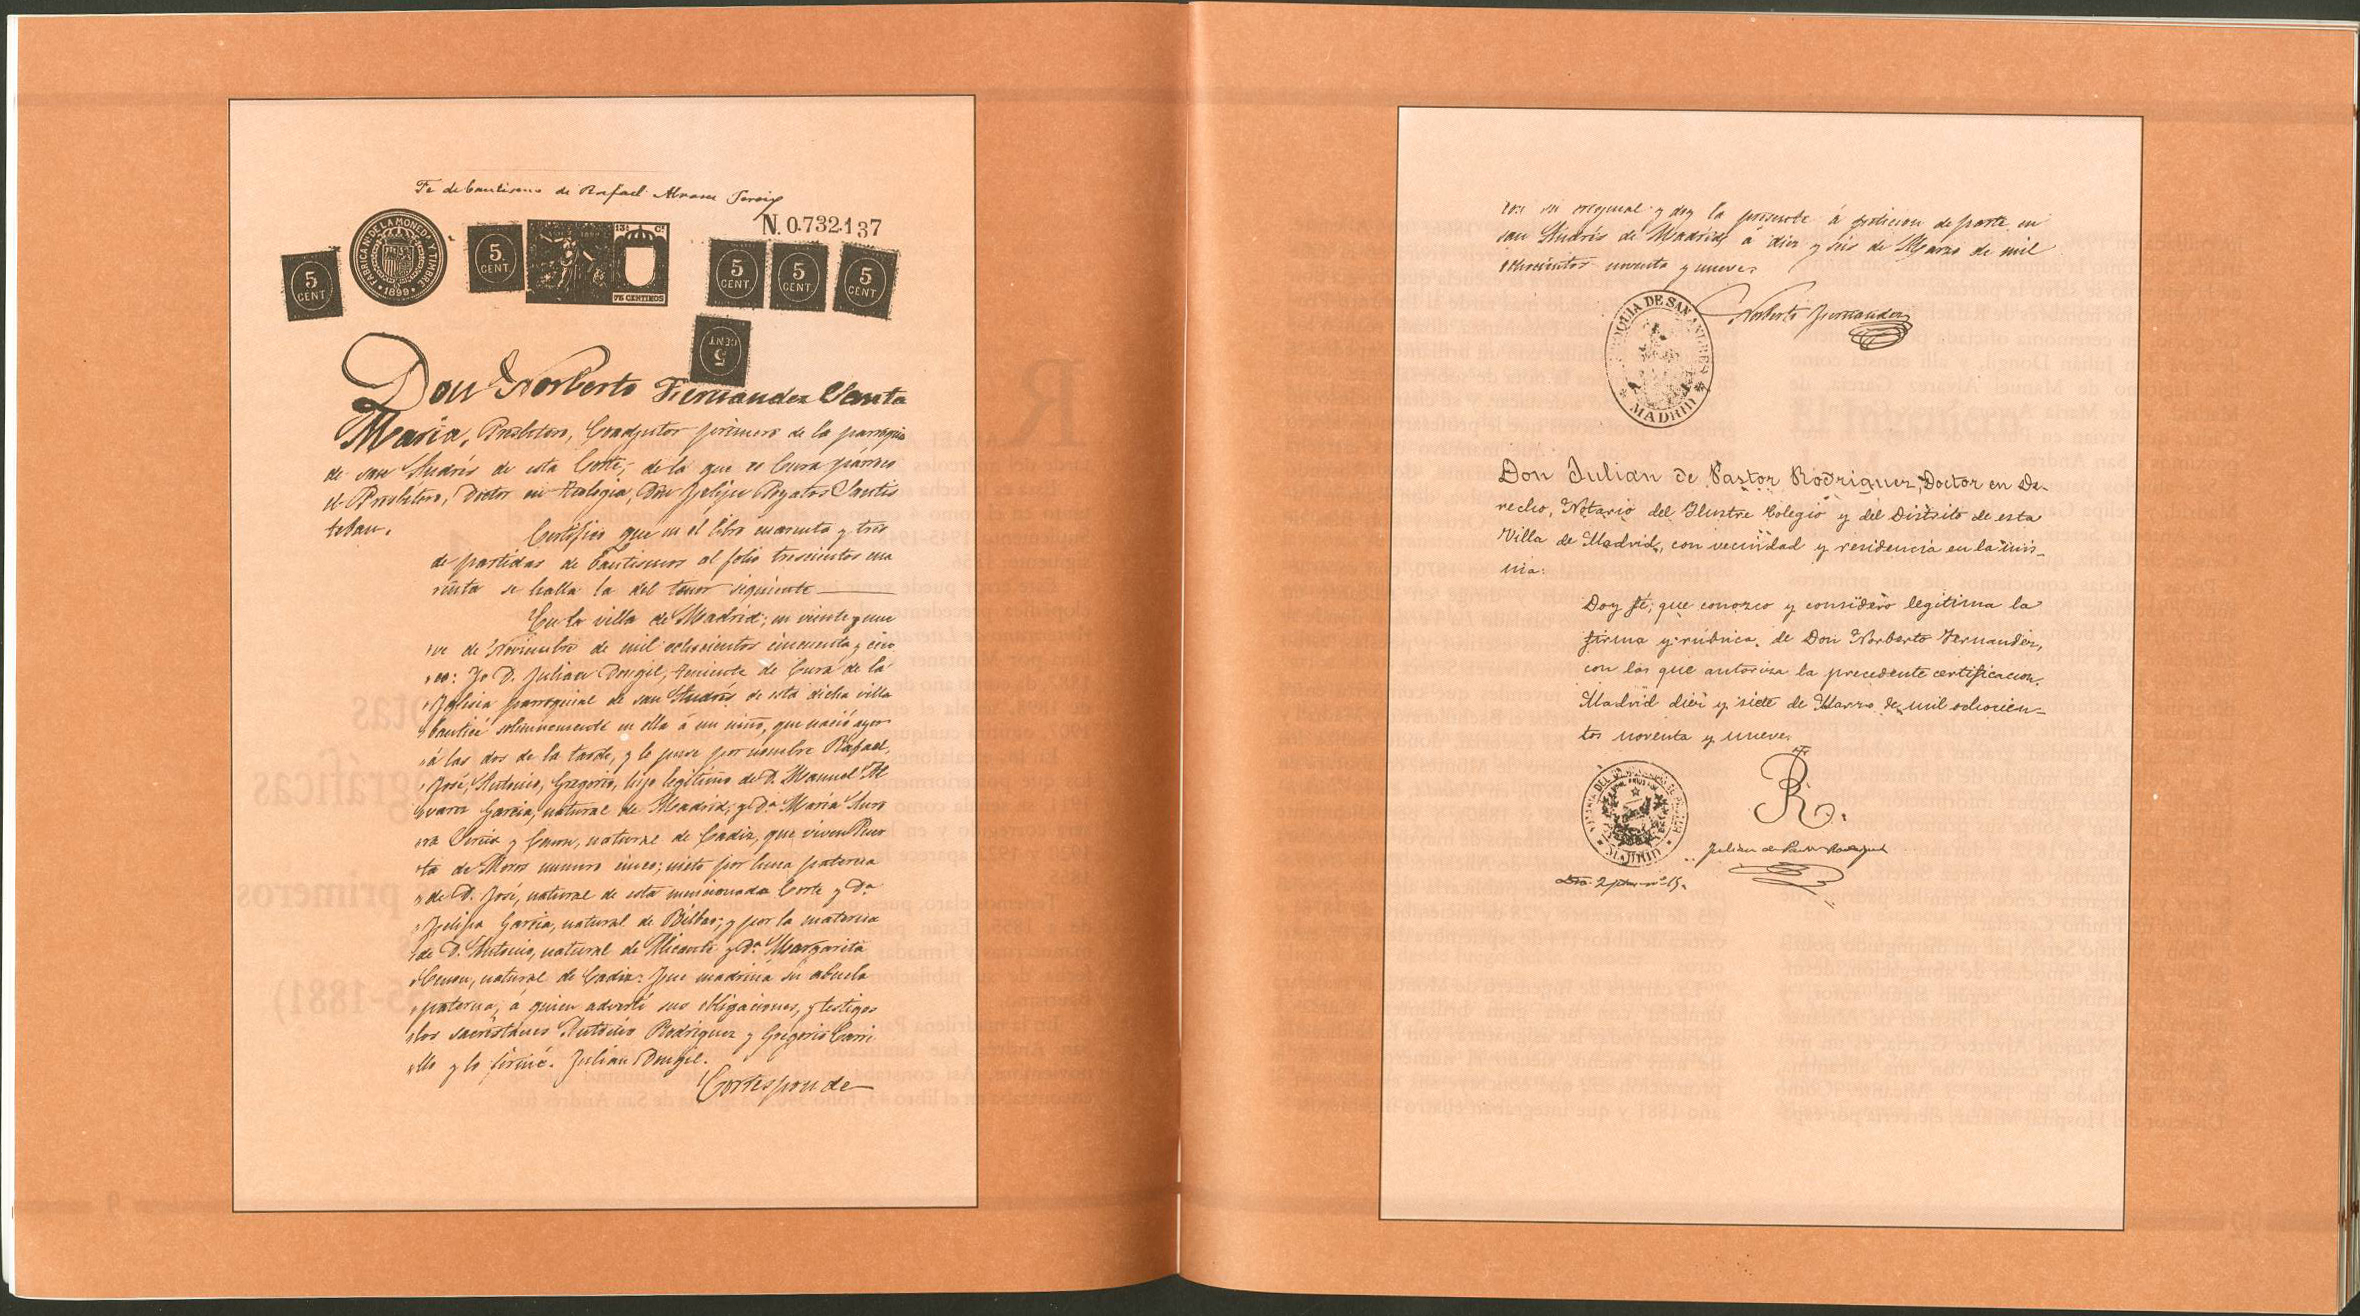 Fe de bautismo de Rafael Alvarez Sereix
N. 0.732.137
FABRICA N. DE LA MONEDA Y TIMBRE
1899
5 CENT.
5 CENT.
75 CENTIMOS
5 CENT.
5 CENT.
5 CENT.
5 CENT.
Don Norberto Fernandez Santa
Maria, Presbitero, Coadjutor primero de la parroquia
de san Andrés de esta Corte, de la que es Cura párroco
el Presbítero, Doctor en Teologia, Don Felipe Poyatos Santis
teban.
Certifico que en el libro cuarenta y tres
de partidas de Bautismos al folio trescientos cua
renta se halla la del tenor siguiente
En la villa de Madrid; en veinte y nue
ve de Noviembre de mil ochocientos cincuenta y cin
co: Yo D. Julian Dongil, teniente de Cura de la
Iglesia parroquial de san Andrés de esta dicha villa
bauticé solemnemente en ella á un niño, que nació ayer
á las dos de la tarde, y le puse por nombre Rafael,
José, Antonio, Gregorio, hijo legítimo de D. Manuel Al
varez Garcia, natural de Madrid; y Dª Maria Auro
ra y natural de Cadiz, que viven Puer
ta de Moros numero cinco; nieto por linea paterna
de D. José, natural de esta mencionada Corte y Dª
Felipa Garcia, natural de Bilbao; y por la materna
de D. Antonio, natural de Alicante y Dª Margarita
natural de Cadiz: fue madrina su abuela
paterna, á quien advertí sus obligaciones, y testigos
los sacristanes Antonio Rodriguez y Gregorio Carri
llo y lo firmé. Julian Dongil.
Corresponde
con su original y doy la presente á peticion de parte en
san Andrés de Madrid á diez y seis de Marzo de mil
ochocientos noventa y nueve.
PARROQUIA DE SAN ANDRES
MADRID
Norberto Fernandez
Don Julian de Pastor Rodriguez, Doctor en De-
recho, Notario del Ilustre Colegio y del Distrito de esta
Villa de Madrid, con vecindad y residencia en la mis-
ma:
Doy fé; que conozco y considero legítima la
firma y rúbrica, de Don Norberto Fernandez,
con las que autoriza la precedente certificacion.
Madrid diez y siete de Marzo de mil ochocien-
tos noventa y nueve.
MADRID
Julian de Pastor Rodriguez